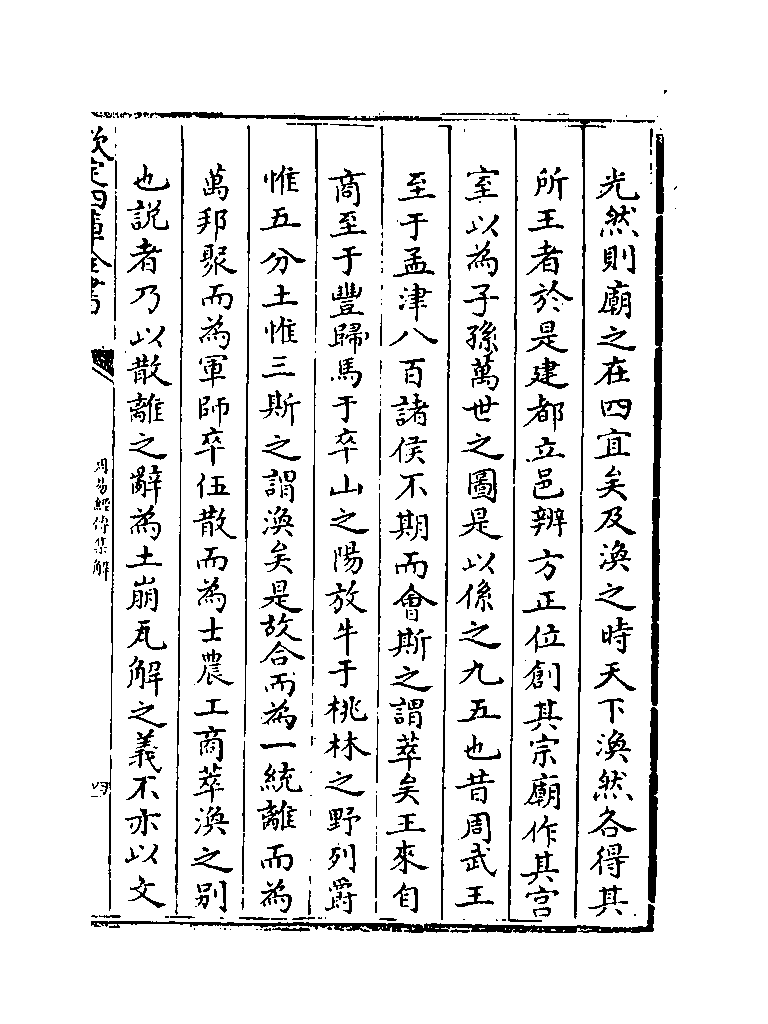 光然則廟之在四宜矣及渙之時天下渙然各得其
所王者於是建都立邑辨方正位創其宗廟作其宫
室以為子孫萬世之圖是以係之九五也昔周武王
至于孟津八百諸侯不期而會斯之謂萃矣王來自
商至于豐歸馬于卒山之陽放牛于桃林之野列爵
惟五分土惟三斯之謂渙矣是故合而為一統離而為
萬邦聚而為軍師卒伍散而為士農工商萃渙之别
也説者乃以散離之辭為土崩瓦解之義不亦以文
欽定四庫全書
周易經傳集解
四